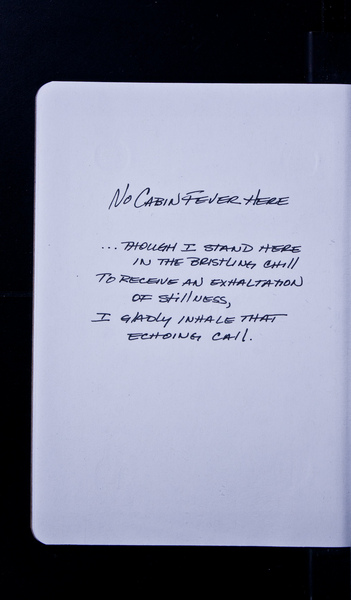 No Cabin Fever Here
... Though I stand here
in the bristling chill
To receive an exhaltation
of stillness,
I gladly inhale that
echoing call.